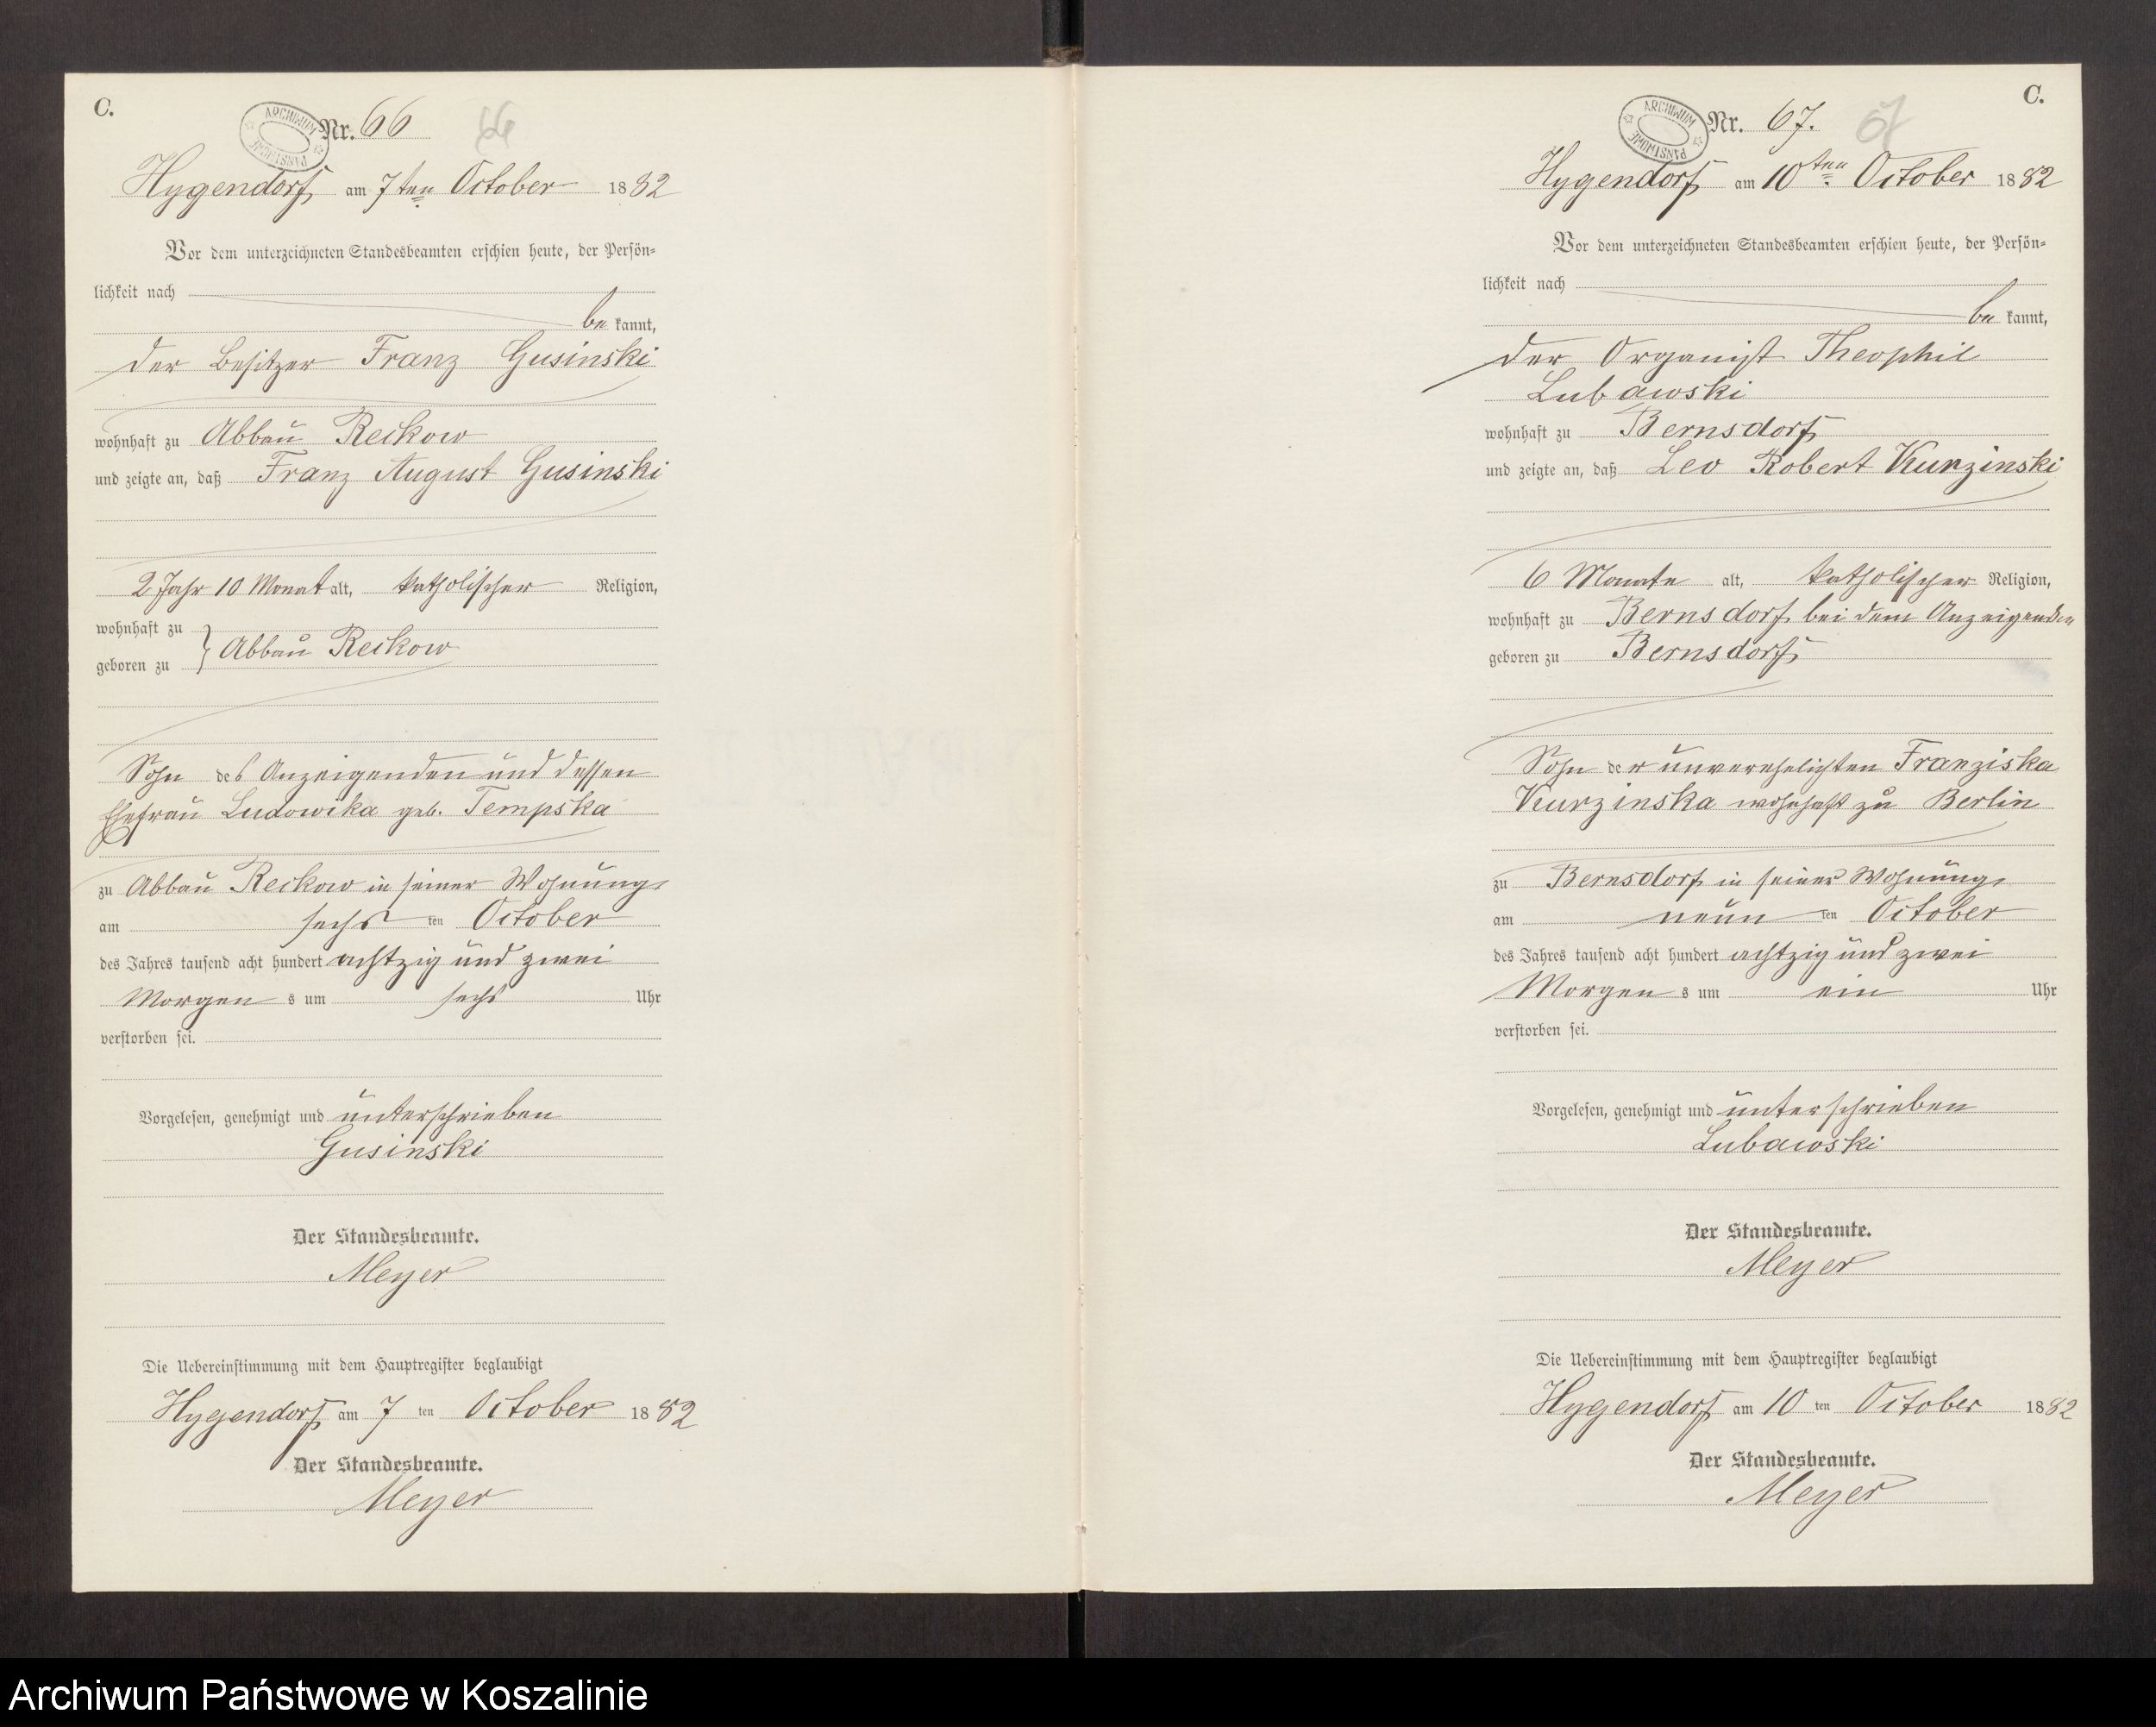 C.
ARCHIWUM PAŃSTWOWE
Nr. 66
66
Hygendorf am 7ten October 1882
Vor dem unterzeichneten Standesbeamten erschien heute, der Persön-
lichkeit nach
be kannt,
der Besitzer Franz Gusinski
wohnhaft zu Abbau Reckow
und zeigte an, daß Franz August Gusinski
2 Jahr 10 Monat alt, katholischer Religion,
wohnhaft zu
geboren zu } Abbau Reckow
Sohn des Anzeigenden und dessen
Ehefrau Ludowika geb. Tempska
zu Abbau Reckow in seiner Wohnung,
am sechs ten October
des Jahres tausend acht hundert achtzig und zwei
Morgen s um sechs Uhr
verstorben sei.
Vorgelesen, genehmigt und unterschrieben
Gusinski
Der Standesbeamte.
Meyer
Die Uebereinstimmung mit dem Hauptregister beglaubigt
Hygendorf am 7 ten October 1882
Der Standesbeamte.
Meyer
C.
ARCHIWUM PAŃSTWOWE
Nr. 67.
67
Hygendorf am 10ten October 1882
Vor dem unterzeichneten Standesbeamten erschien heute, der Persön-
lichkeit nach
be kannt,
der Organist Theophil
Lubawski
wohnhaft zu Bernsdorf
und zeigte an, daß Leo Robert Kurzinski
6 Monate alt, katholischer Religion,
wohnhaft zu Bernsdorf bei dem Anzeigenden
geboren zu Bernsdorf
Sohn der unverehelichten Franziska
Kurzinska wohnhaft zu Berlin
zu Bernsdorf in seiner Wohnung,
am neun ten October
des Jahres tausend acht hundert achtzig und zwei
Morgen s um ein Uhr
verstorben sei.
Vorgelesen, genehmigt und unterschrieben
Lubawski
Der Standesbeamte.
Meyer
Die Uebereinstimmung mit dem Hauptregister beglaubigt
Hygendorf am 10 ten October 1882
Der Standesbeamte.
Meyer
Archiwum Państwowe w Koszalinie